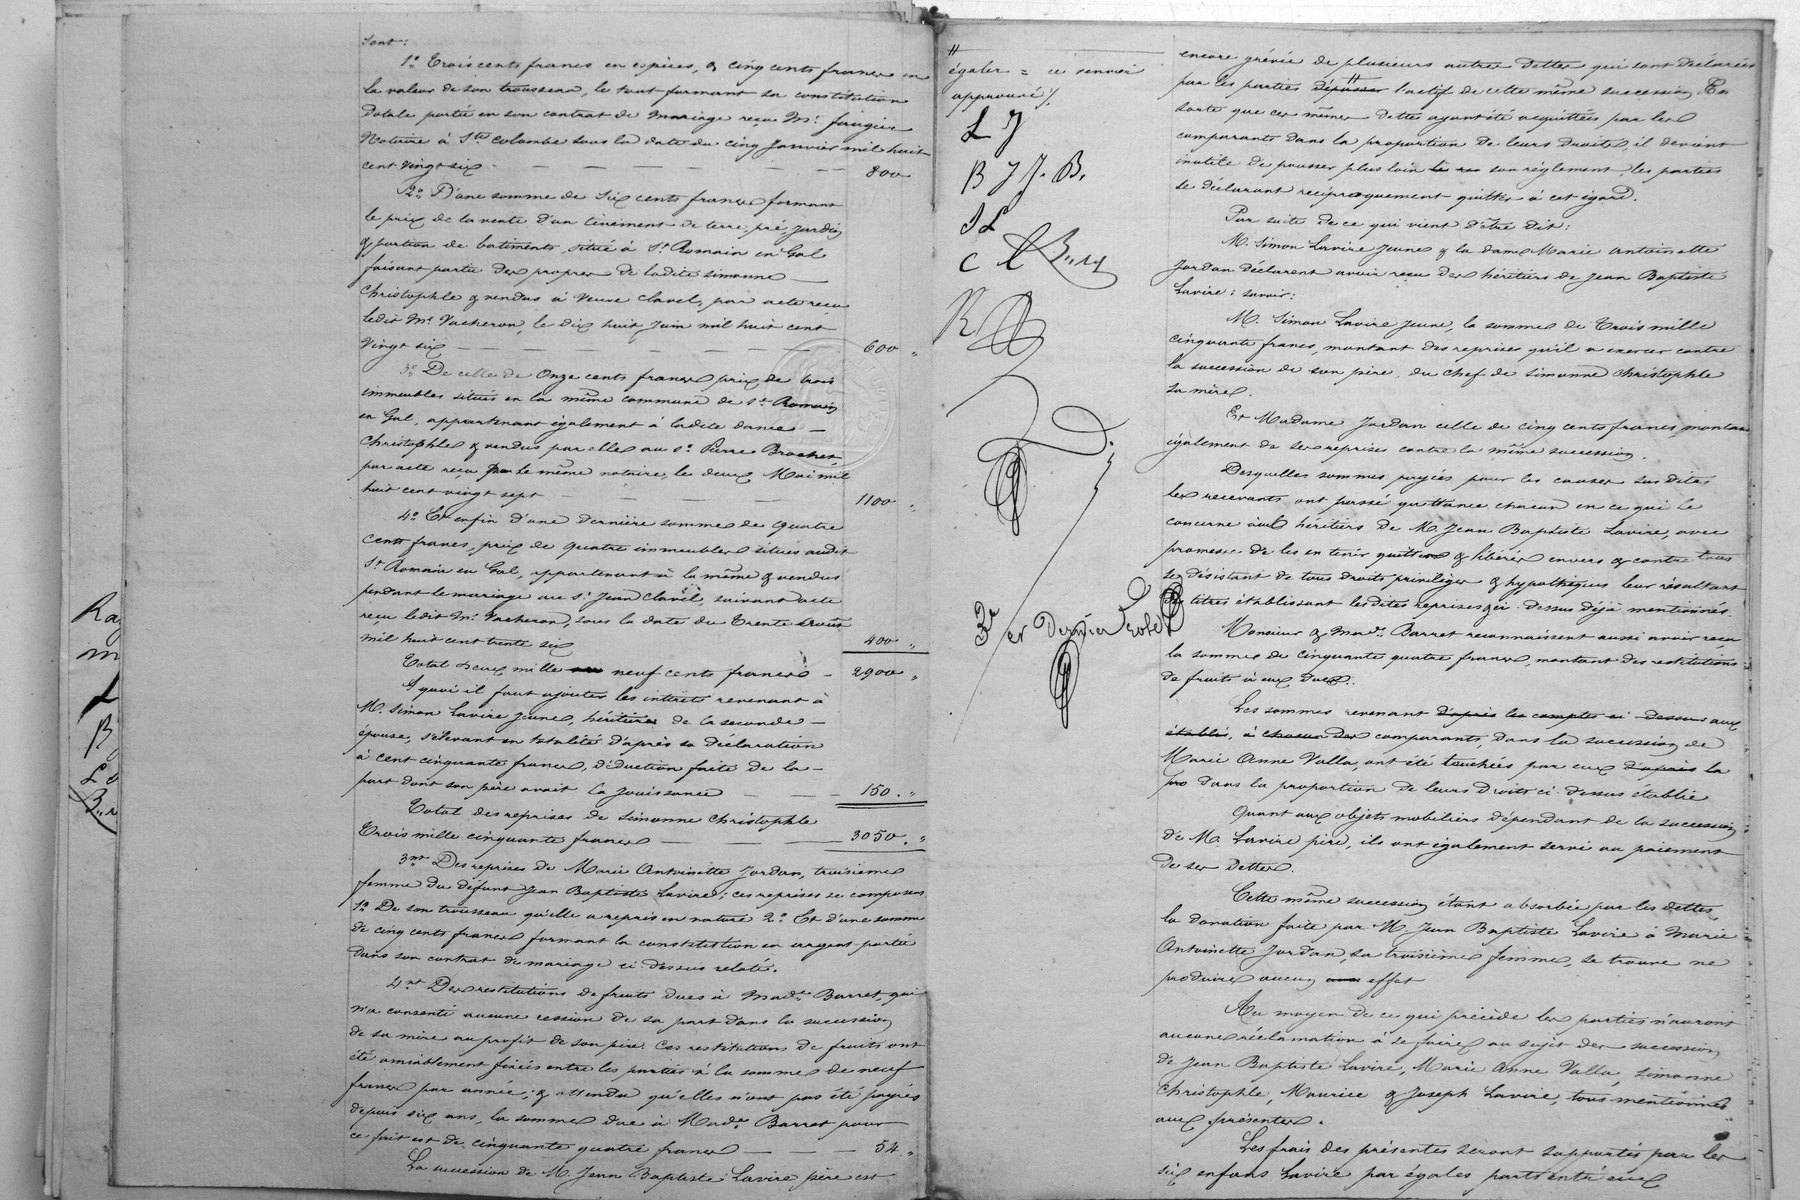 sont:
1º Trois cents francs en espèces, & cinq cents francs en
la valeur de son trousseau, le tout formant sa constitution
dotale portée en son contrat de mariage reçu Mᵉ
Notaire à Ste colombe sous la date du cinq Janvier mil huit
cent vingt six — — — — 800
2º D'une somme de Six cents francs formant
le prix de la vente d'un tènement de terre, pré, jardin
& portion de batiments, situé à St Romain en Gal
faisant partie des propres de ladite simonne —
Christophle & vendus à veuve Clavel, par acte reçu
ledit Mᵉ Vacheron, le dix huit Juin mil huit cent
Vingt six — — — — 600 "
3º De celle de Onze cents francs prix de trois
immeubles situés en la même commune de St Romain
en Gal, appartenant également à ladite dame —
Christophle & vendus par elle au sr Pierre Brochet,
par acte reçu par le même notaire, le deux Mai mil
huit cent vingt sept — — — 1100 "
4º Et enfin d'une dernière somme de quatre
cents francs, prix de quatre immeubles situés audit
St Romain en Gal, appartenant à la même & vendus
pendant le mariage au sr Jean Clavel, suivant acte
reçu ledit Mᵉ Vacheron, sous la date du Trente
mil huit cent trente six 400 "
Total deux mille neuf cents francs — 2900 "
A quoi il faut ajouter les intérêts revenant à
M. Simon Lavire jeune, héritier de la seconde —
épouse, s'élevant en totalité d'après sa déclaration
à Cent cinquante francs, déduction faite de la —
part dont son père avait la jouissance — — 150. "
Total des reprises de Simonne Christophle
Trois mille cinquante francs — — — 3050. "
3ent Des reprises de Marie Antoinette Jordan, troisième
femme du défunt Jean Baptiste Lavire; ces reprises se composent
1º De son trousseau qu'elle a repris en nature 2º Et d'une somme
de cinq cents francs formant la constitution en argent portée
dans son contrat de mariage ci-dessus relaté.
4ent Des restitutions de fruits dues à Made Barret, qui
n'a consenti aucune cession de sa part dans la succession
de sa mère au profit de son père. Ces restitutions de fruits ont
été amiablement fixées entre les parties à la somme de neuf
francs par année, & attendu qu'elles n'ont pas été payées
depuis six ans, la somme due à Made Barret pour
ce fait est de cinquante quatre francs — — — 54 "
La succession de M. Jean Baptiste Lavire père est
égaler = ce renvoi
approuvé /.
L J
B J J. B.
J L
C L
R
3e et Dernier rôle
encore grévée de plusieurs autres dettes qui sont déclarées
par les parties dépasser l'actif de cette même succession. En
sorte que ces mêmes dettes ayant été acquittées par les
comparants dans la proportion de leurs droits, il devient
inutile de pousser plus loin son règlement, les parties
se déclarant réciproquement quittes à cet égard.
Par suite de ce qui vient d'être dit:
M. Simon Lavire Jeune & la dame Marie Antoinette
Jordan déclarent avoir reçu des héritiers de Jean Baptiste
Lavire: savoir:
M. Simon Lavire jeune, la somme de Trois mille
cinquante francs, montant des reprises qu'il a à exercer contre
la succession de son père, du chef de simonne Christophle
sa mère.
Et Madame Jordan celle de cinq cents francs, montant
également de ses reprises contre la même succession.
Desquelles sommes payées pour les causes susdites
les recevants ont passé quittance chacun en ce qui le
concerne aux héritiers de M. Jean Baptiste Lavire, avec
promesse de les en tenir quittes & libérés envers & contre tous
se désistant de tous droits, privilèges & hypothèques leur résultant
des titres établissant lesdites reprises & ci-dessus déjà mentionnés.
Monsieur & Made Barret reconnaissent aussi avoir reçu
la somme de cinquante quatre francs, montant des restitutions
de fruits à eux dues.
Les sommes revenant d'après les comptes ci-dessus aux
établis, à chacun des comparants, dans la succession de
Marie Anne Valla, ont été touchées par eux d'après la
pro dans la proportion de leurs droits ci-dessus établie
Quant aux objets mobiliers dépendant de la succession
de M. Lavire père, ils ont également servi au paiement
de ses dettes.
Cette même succession étant absorbée par les dettes,
la donation faite par M Jean Baptiste Lavire à Marie
Antoinette Jordan, sa troisième femme, se trouve ne
produire aucun effet
Au moyen de ce qui précède les parties n'auront
aucune réclamation à se faire au sujet des succession
de Jean Baptiste Lavire, Marie Anne Valla, Simonne
Christophle, Maurice & Joseph Lavire, tous mentionnés
aux présentes.
Les frais des présentes seront supportés par les
six enfans Lavire par égales parts entre eux